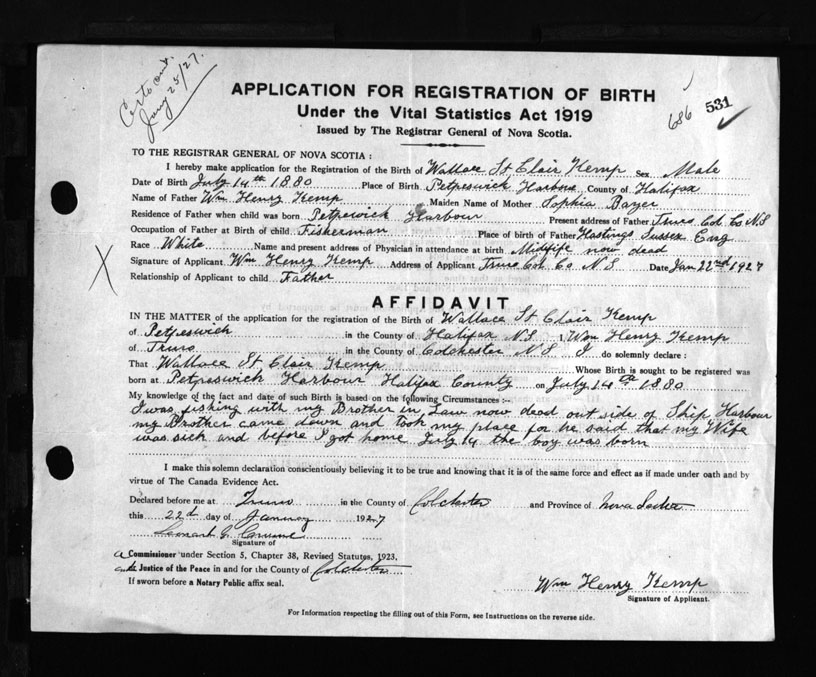 Cert out.
Jany 25/27.
APPLICATION FOR REGISTRATION OF BIRTH
Under the Vital Statistics Act 1919
Issued by The Registrar General of Nova Scotia.
686 531
TO THE REGISTRAR GENERAL OF NOVA SCOTIA :
I hereby make application for the Registration of the Birth of Wallace St Clair Kemp Sex Male
Date of Birth July 14th 1880 Place of Birth Petpeswick Harbour County of Halifax
Name of Father Wm Henry Kemp Maiden Name of Mother Sophia Bayer
Residence of Father when child was born Petpeswick Harbour Present address of Father Truro Col Co N S
Occupation of Father at Birth of child Fisherman Place of birth of Father Hastings Sussex Eng
Race White Name and present address of Physician in attendance at birth Midfife now dead
Signature of Applicant Wm Henry Kemp Address of Applicant Truro Col. Co N S Date Jan 22nd 1927
Relationship of Applicant to child Father
AFFIDAVIT
IN THE MATTER of the application for the registration of the Birth of Wallace St Clair Kemp
of Petpeswich in the County of Halifax N S I, Wm Henry Kemp
of Truro in the County of Colchester N S I do solemnly declare :
That Wallace St Clair Kemp Whose Birth is sought to be registered was
born at Petpeswich Harbour Halifax County on July 14th 1880
My knowledge of the fact and date of such Birth is based on the following Circumstances :—
I was fishing with my Brother in Law now dead out side of Ship Harbour
my Brother came down and took my place for he said that my Wife
was sick and before I got home July 14 the boy was born
I make this solemn declaration conscientiously believing it to be true and knowing that it is of the same force and effect as if made under oath and by
virtue of The Canada Evidence Act.
Declared before me at Truro in the County of Colchester and Province of Nova Scotia
this 22d day of January 1927
Signature of
a Commissioner under Section 5, Chapter 38, Revised Statutes, 1923.
Justice of the Peace in and for the County of Colchester
If sworn before a Notary Public affix seal.
Wm Henry Kemp
Signature of Applicant.
For Information respecting the filling out of this Form, see Instructions on the reverse side.